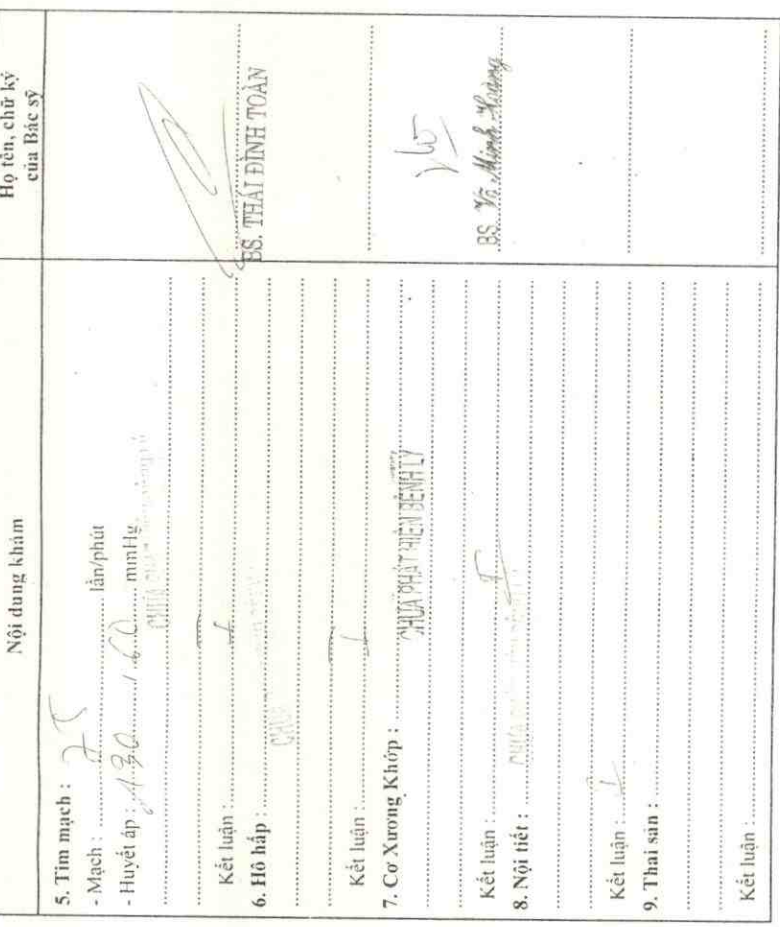 Nội dung khám
Họ tên, chữ ký
của Bác sỹ
5. Tim mạch :
- Mạch : 75 lần/phút
- Huyết áp : 130 / 60 mmHg
CHƯA
Kết luận : I
BS. THÁI ĐÌNH TOÀN
6. Hô hấp :
CHƯA
Kết luận : I
7. Cơ Xương Khớp :
CHƯA PHÁT HIỆN BỆNH LÝ
Kết luận : I
BS. Võ Minh Hoàng
8. Nội tiết :
Kết luận : I
9. Thai sản :
Kết luận :